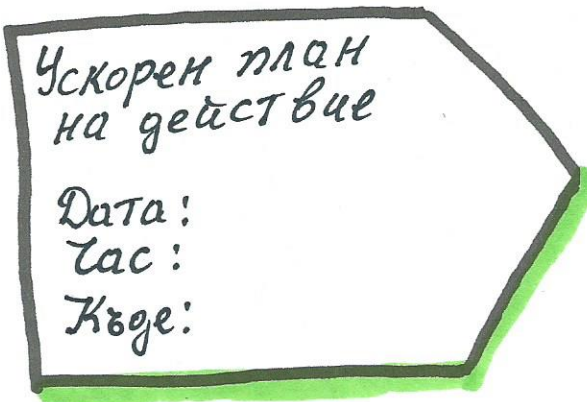 Ускорен план
на действие
Дата:
Час:
Къде: